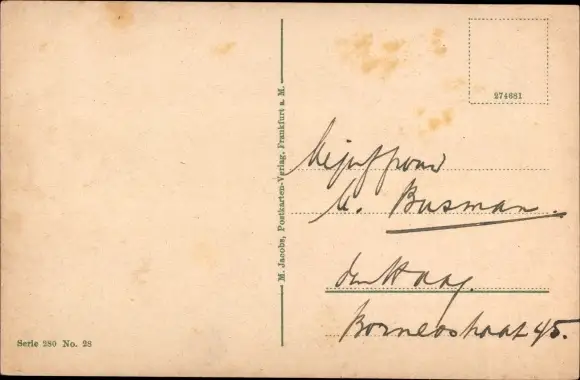 274681
M. Jacobs, Postkarten-Verlag, Frankfurt a. M.
Mejuffrouw
M. Busman.
den Haag.
Borneostraat 45.
Serie 280 No. 28